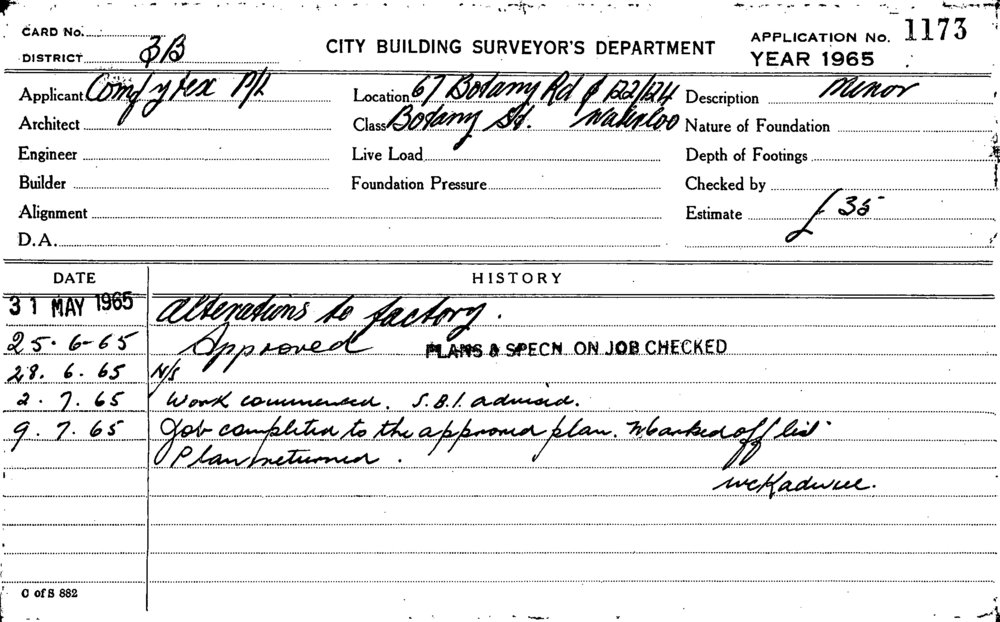 CARD No.
DISTRICT 3B
CITY BUILDING SURVEYOR'S DEPARTMENT
APPLICATION No. 1173
YEAR 1965
Applicant Comfytex P/L
Location 67 Botany Rd & 122/124
Description Minor
Architect
Class Botany St. Waterloo
Nature of Foundation
Engineer
Live Load
Depth of Footings
Builder
Foundation Pressure
Checked by
Alignment
Estimate £35
D.A.
DATE HISTORY
31 MAY 1965 Alterations to factory.
25.6-65 Approved PLANS & SPECN ON JOB CHECKED
28.6.65 N/S
2.7.65 Work commenced. S.B.I. advised.
9.7.65 Job completed to the approved plan. Marked off list
Plan returned.
C of S 882